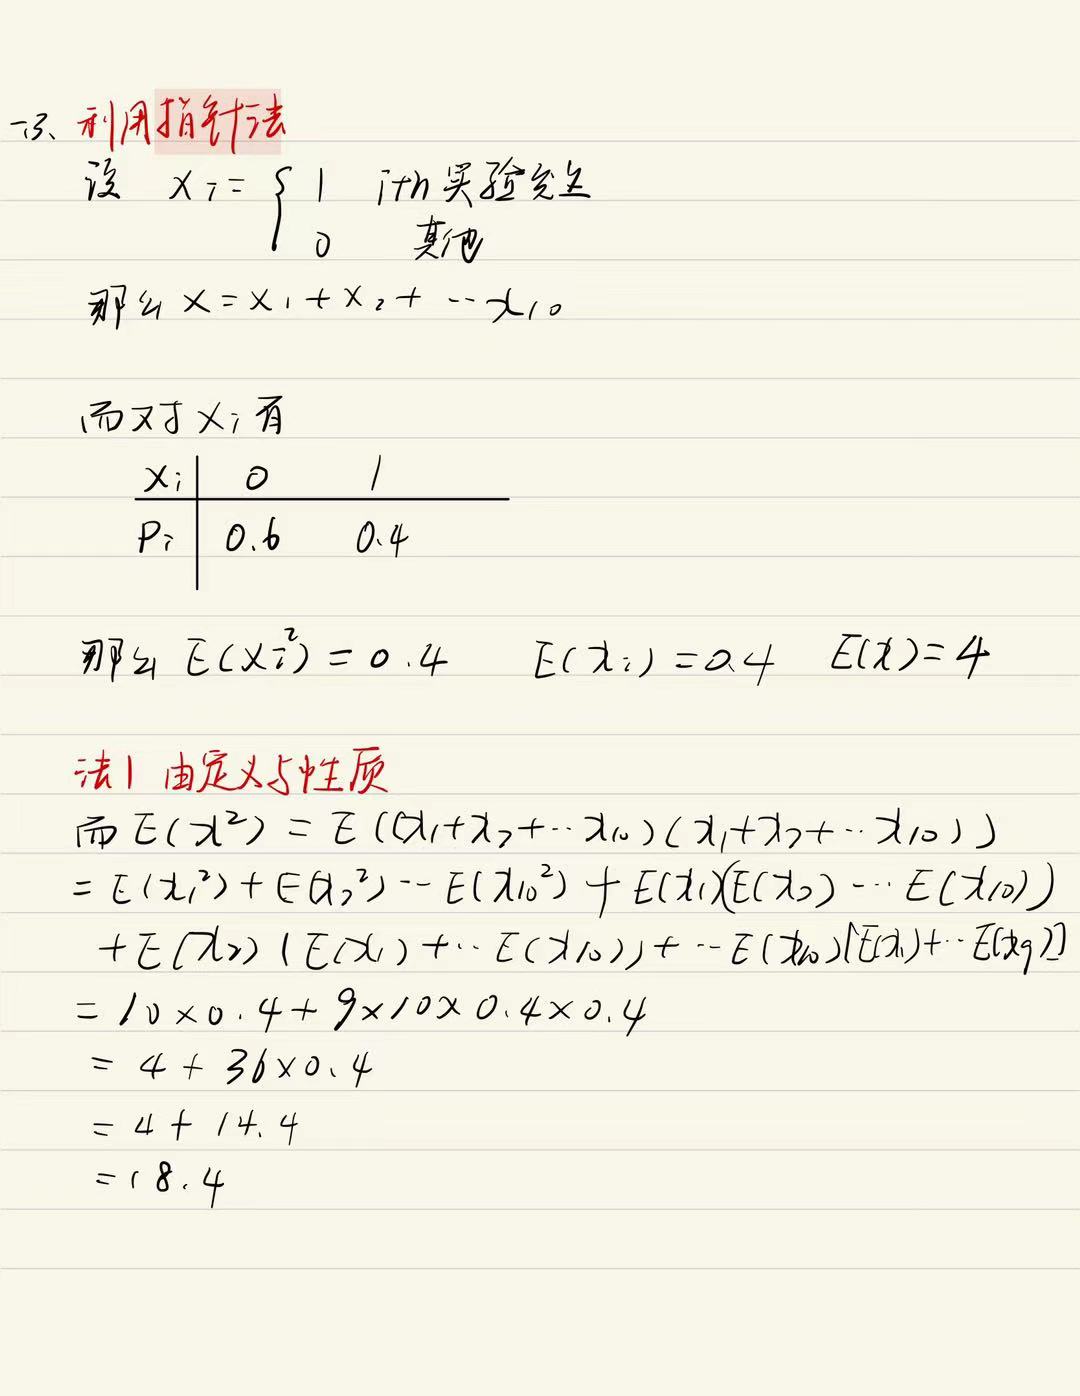 一3、利用指针法
设 Xi = { 1 ith 实验发生
0 其他
那么 X = X₁ + X₂ + ··· x₁₀
而对 Xi 有
Xi 0 1
Pi 0.6 0.4
那么 E(Xi²) = 0.4 E(xi) = 0.4 E(x) = 4
法1 由定义与性质
而 E(x²) = E((x₁+x₂+··x₁₀)(x₁+x₂+··x₁₀))
= E(x₁²) + E(x₂²) ··· E(x₁₀²) + E(x₁)(E(x₂) ··· E(x₁₀))
+ E(x₂)(E(x₁) + ·· E(x₁₀)) + ·· E(x₁₀)[E(x₁) + ·· E(x₉)]
= 10 × 0.4 + 9×10× 0.4 × 0.4
= 4 + 36×0.4
= 4 + 14.4
= 18.4